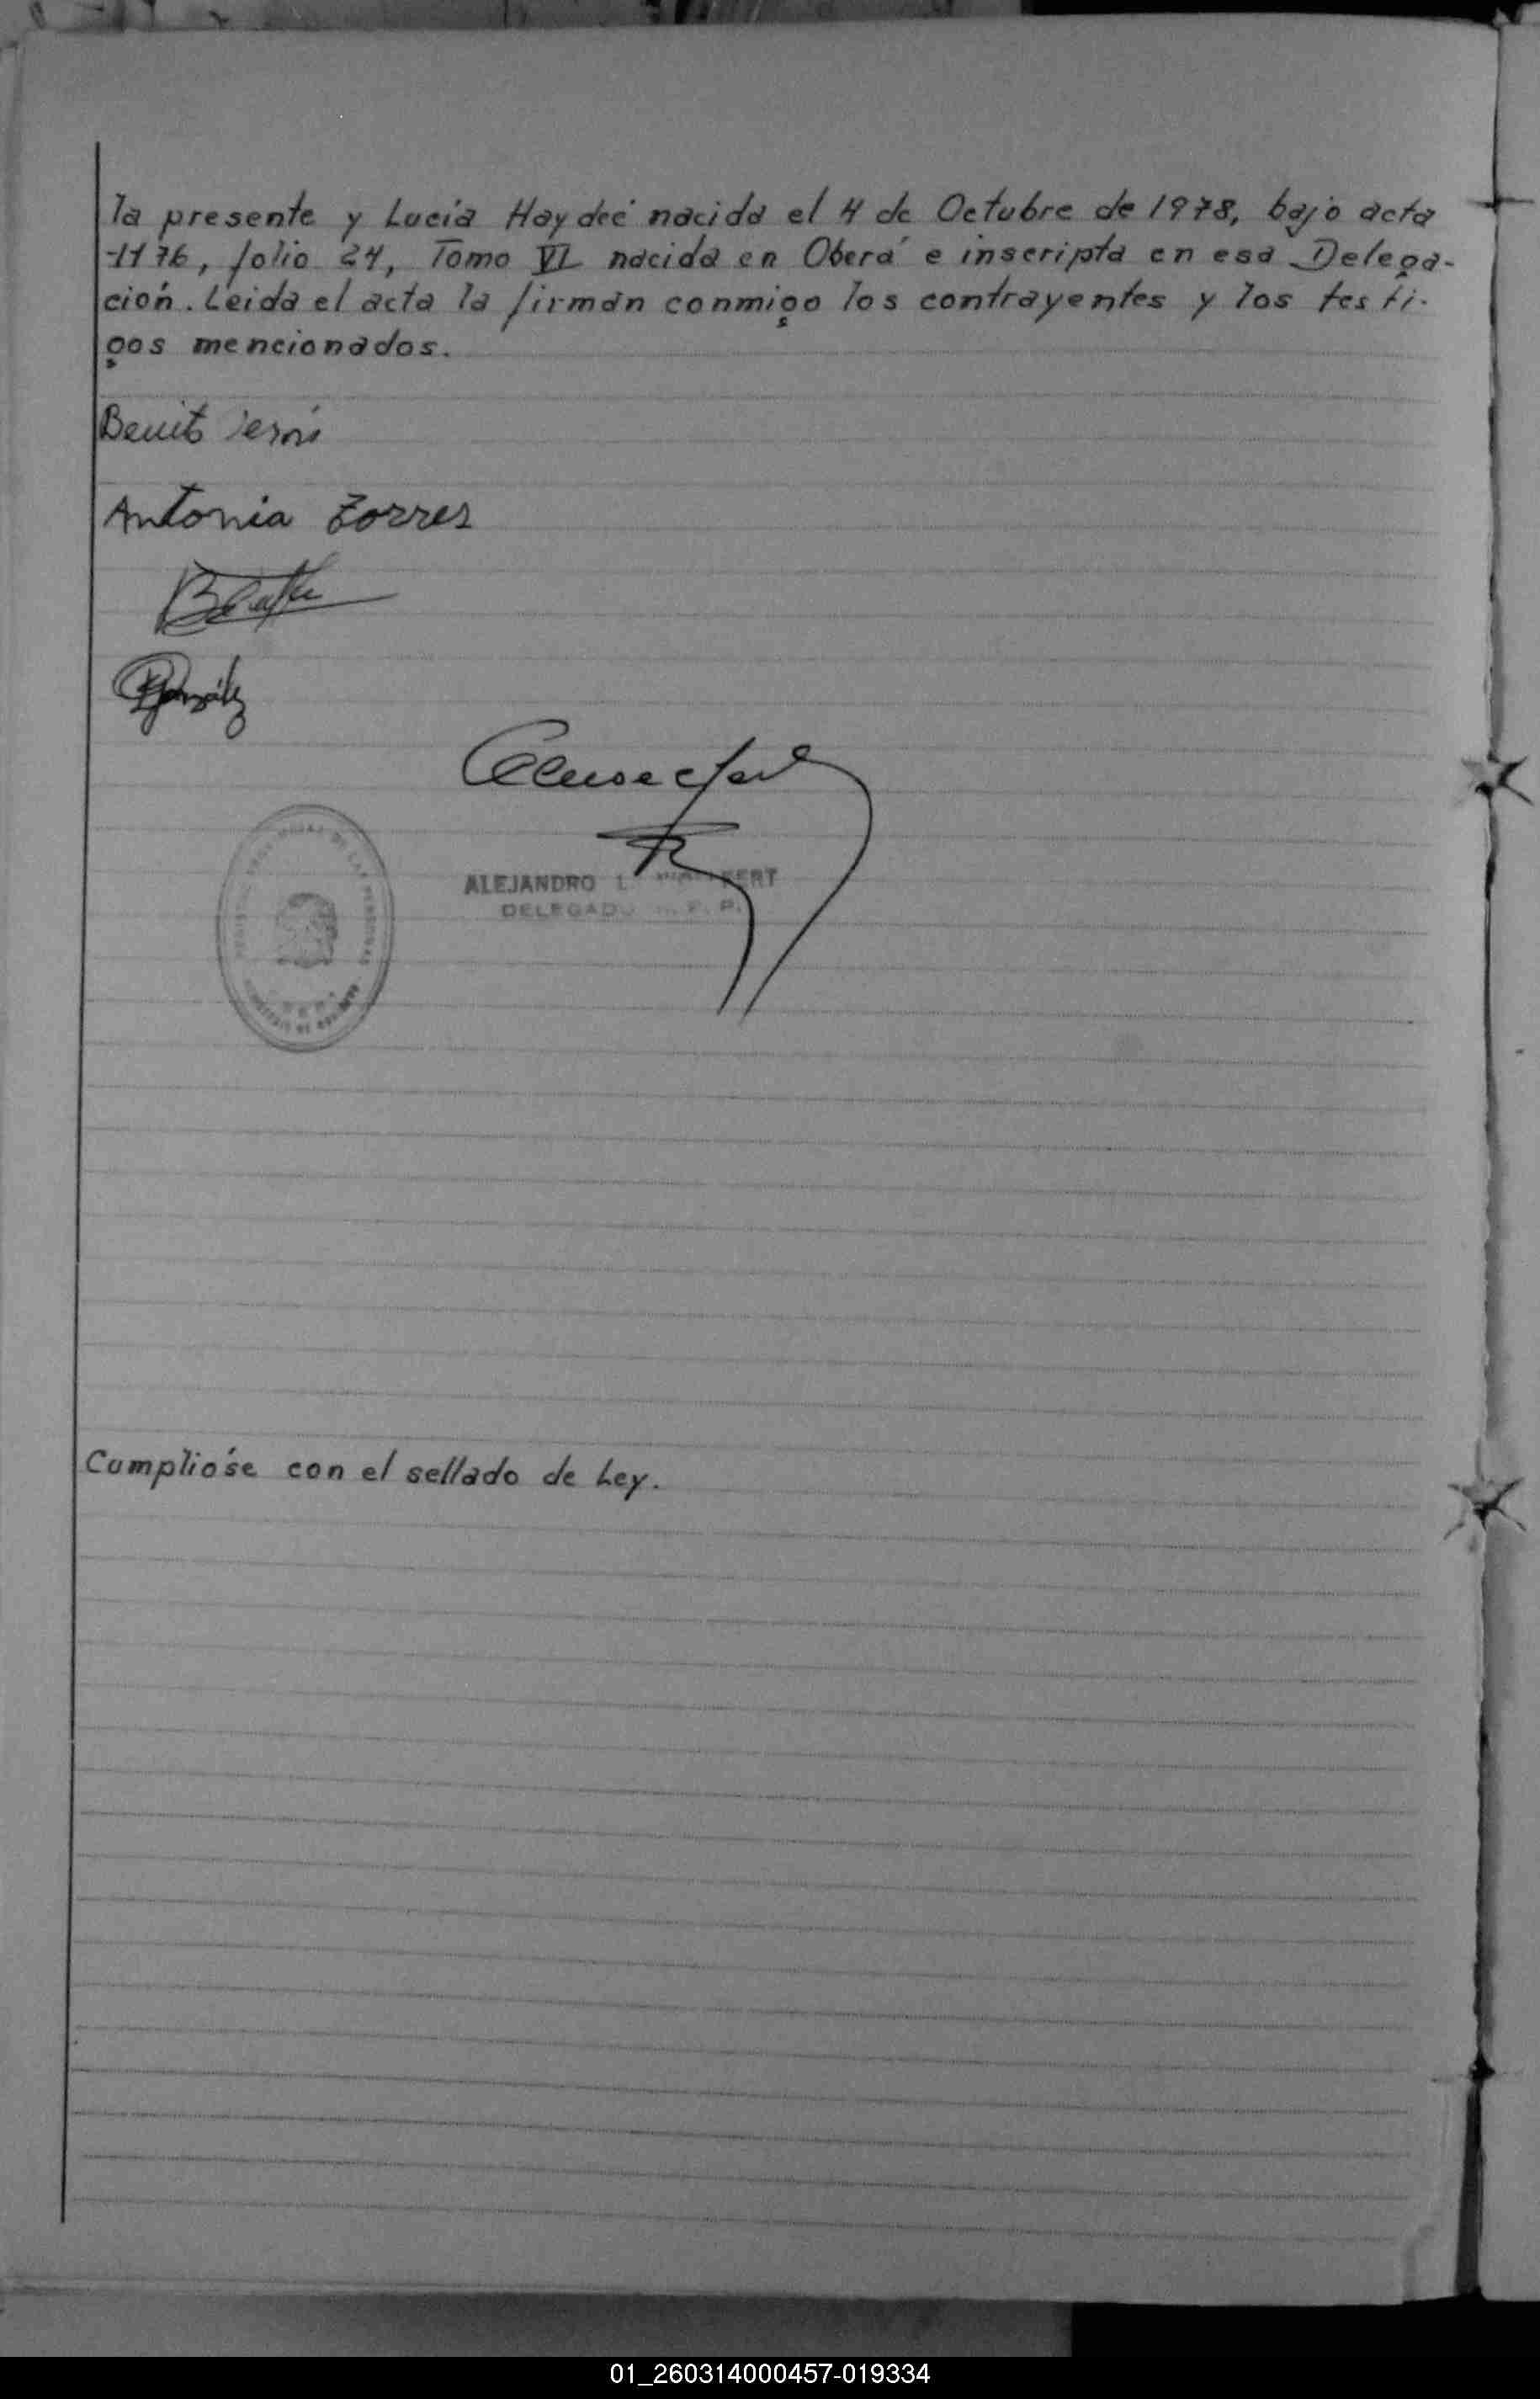 la presente y Lucía Haydeé nacida el 4 de Octubre de 1978, bajo acta
1176, folio 24, Tomo VI nacida en Oberá e inscripta en esa Delega-
ción. Leida el acta la firman conmigo los contrayentes y los testi-
gos mencionados.
Benito
Antonia Torres
González
ALEJANDRO
DELEGADO
Cumplióse con el sellado de Ley.
01_260314000457-019334